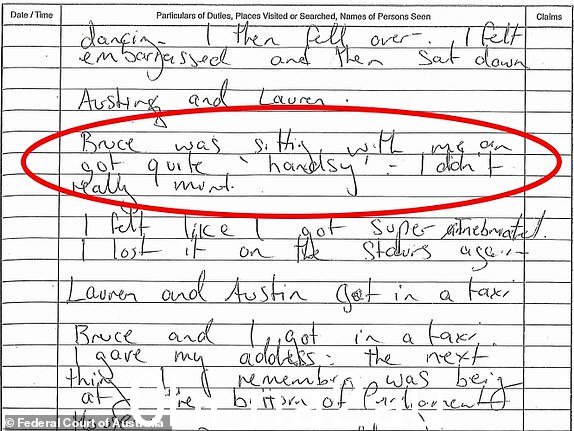 Date / Time Particulars of Duties, Places Visited or Searched, Names of Persons Seen Claims
dancing. I then fell over. I felt
embarrassed and then sat down
Austing and Lauren.
Bruce was sitting with me an
got quite 'handsy' - I didn't
really mind.
I felt like I got super inebriated.
I lost it on the stairs again
Lauren and Austin got in a taxi
Bruce and I got in a taxi.
I gave my address: the next
thing I remember was being
at the bottom of Parliament
© Federal Court of Australia